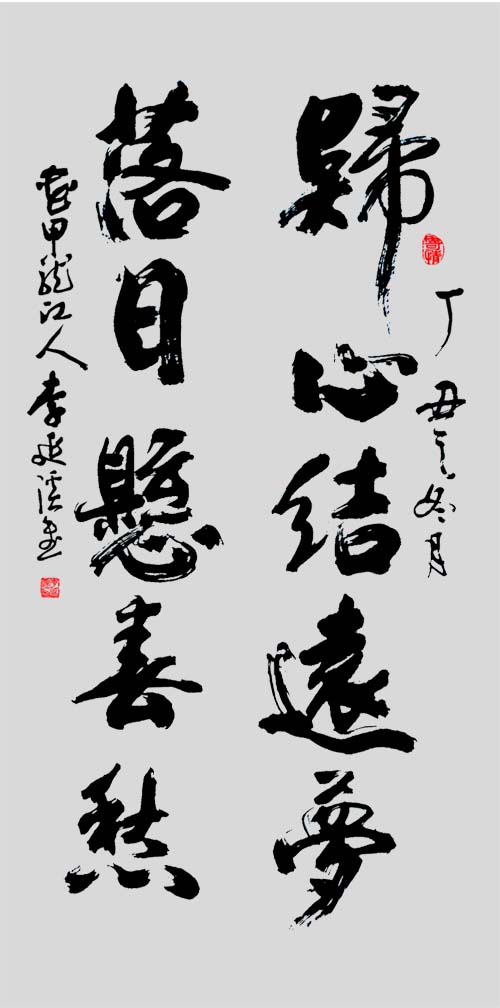 丁丑之冬月
歸心結遠夢
落日懸春愁
甲龍江人李延